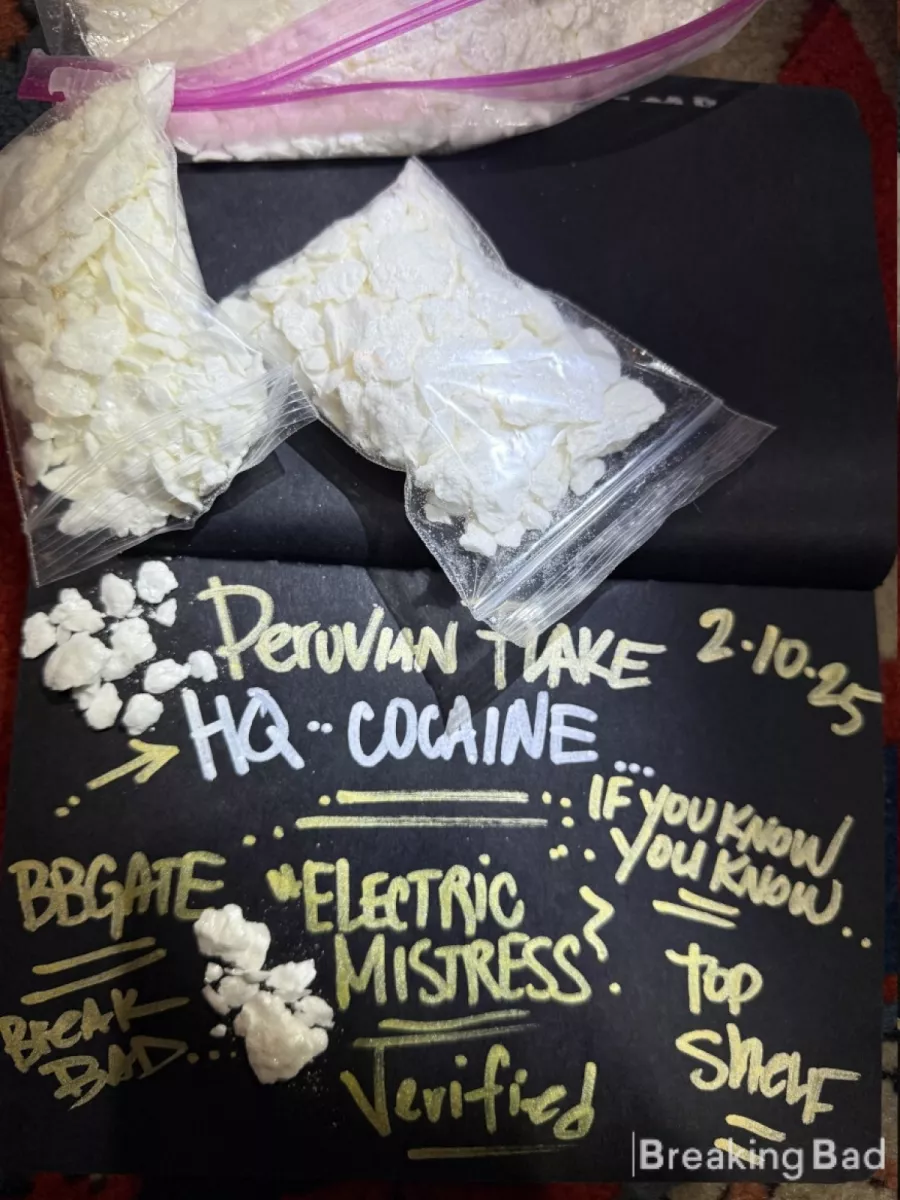 PERUVIAN FLAKE
2·10·25
HQ·· COCAINE...
IF YOU KNOW
YOU KNOW...
BBGATE
"ELECTRIC
MISTRESS
BREAK
BAD...
TOP
SHELF
Verified
Breaking Bad